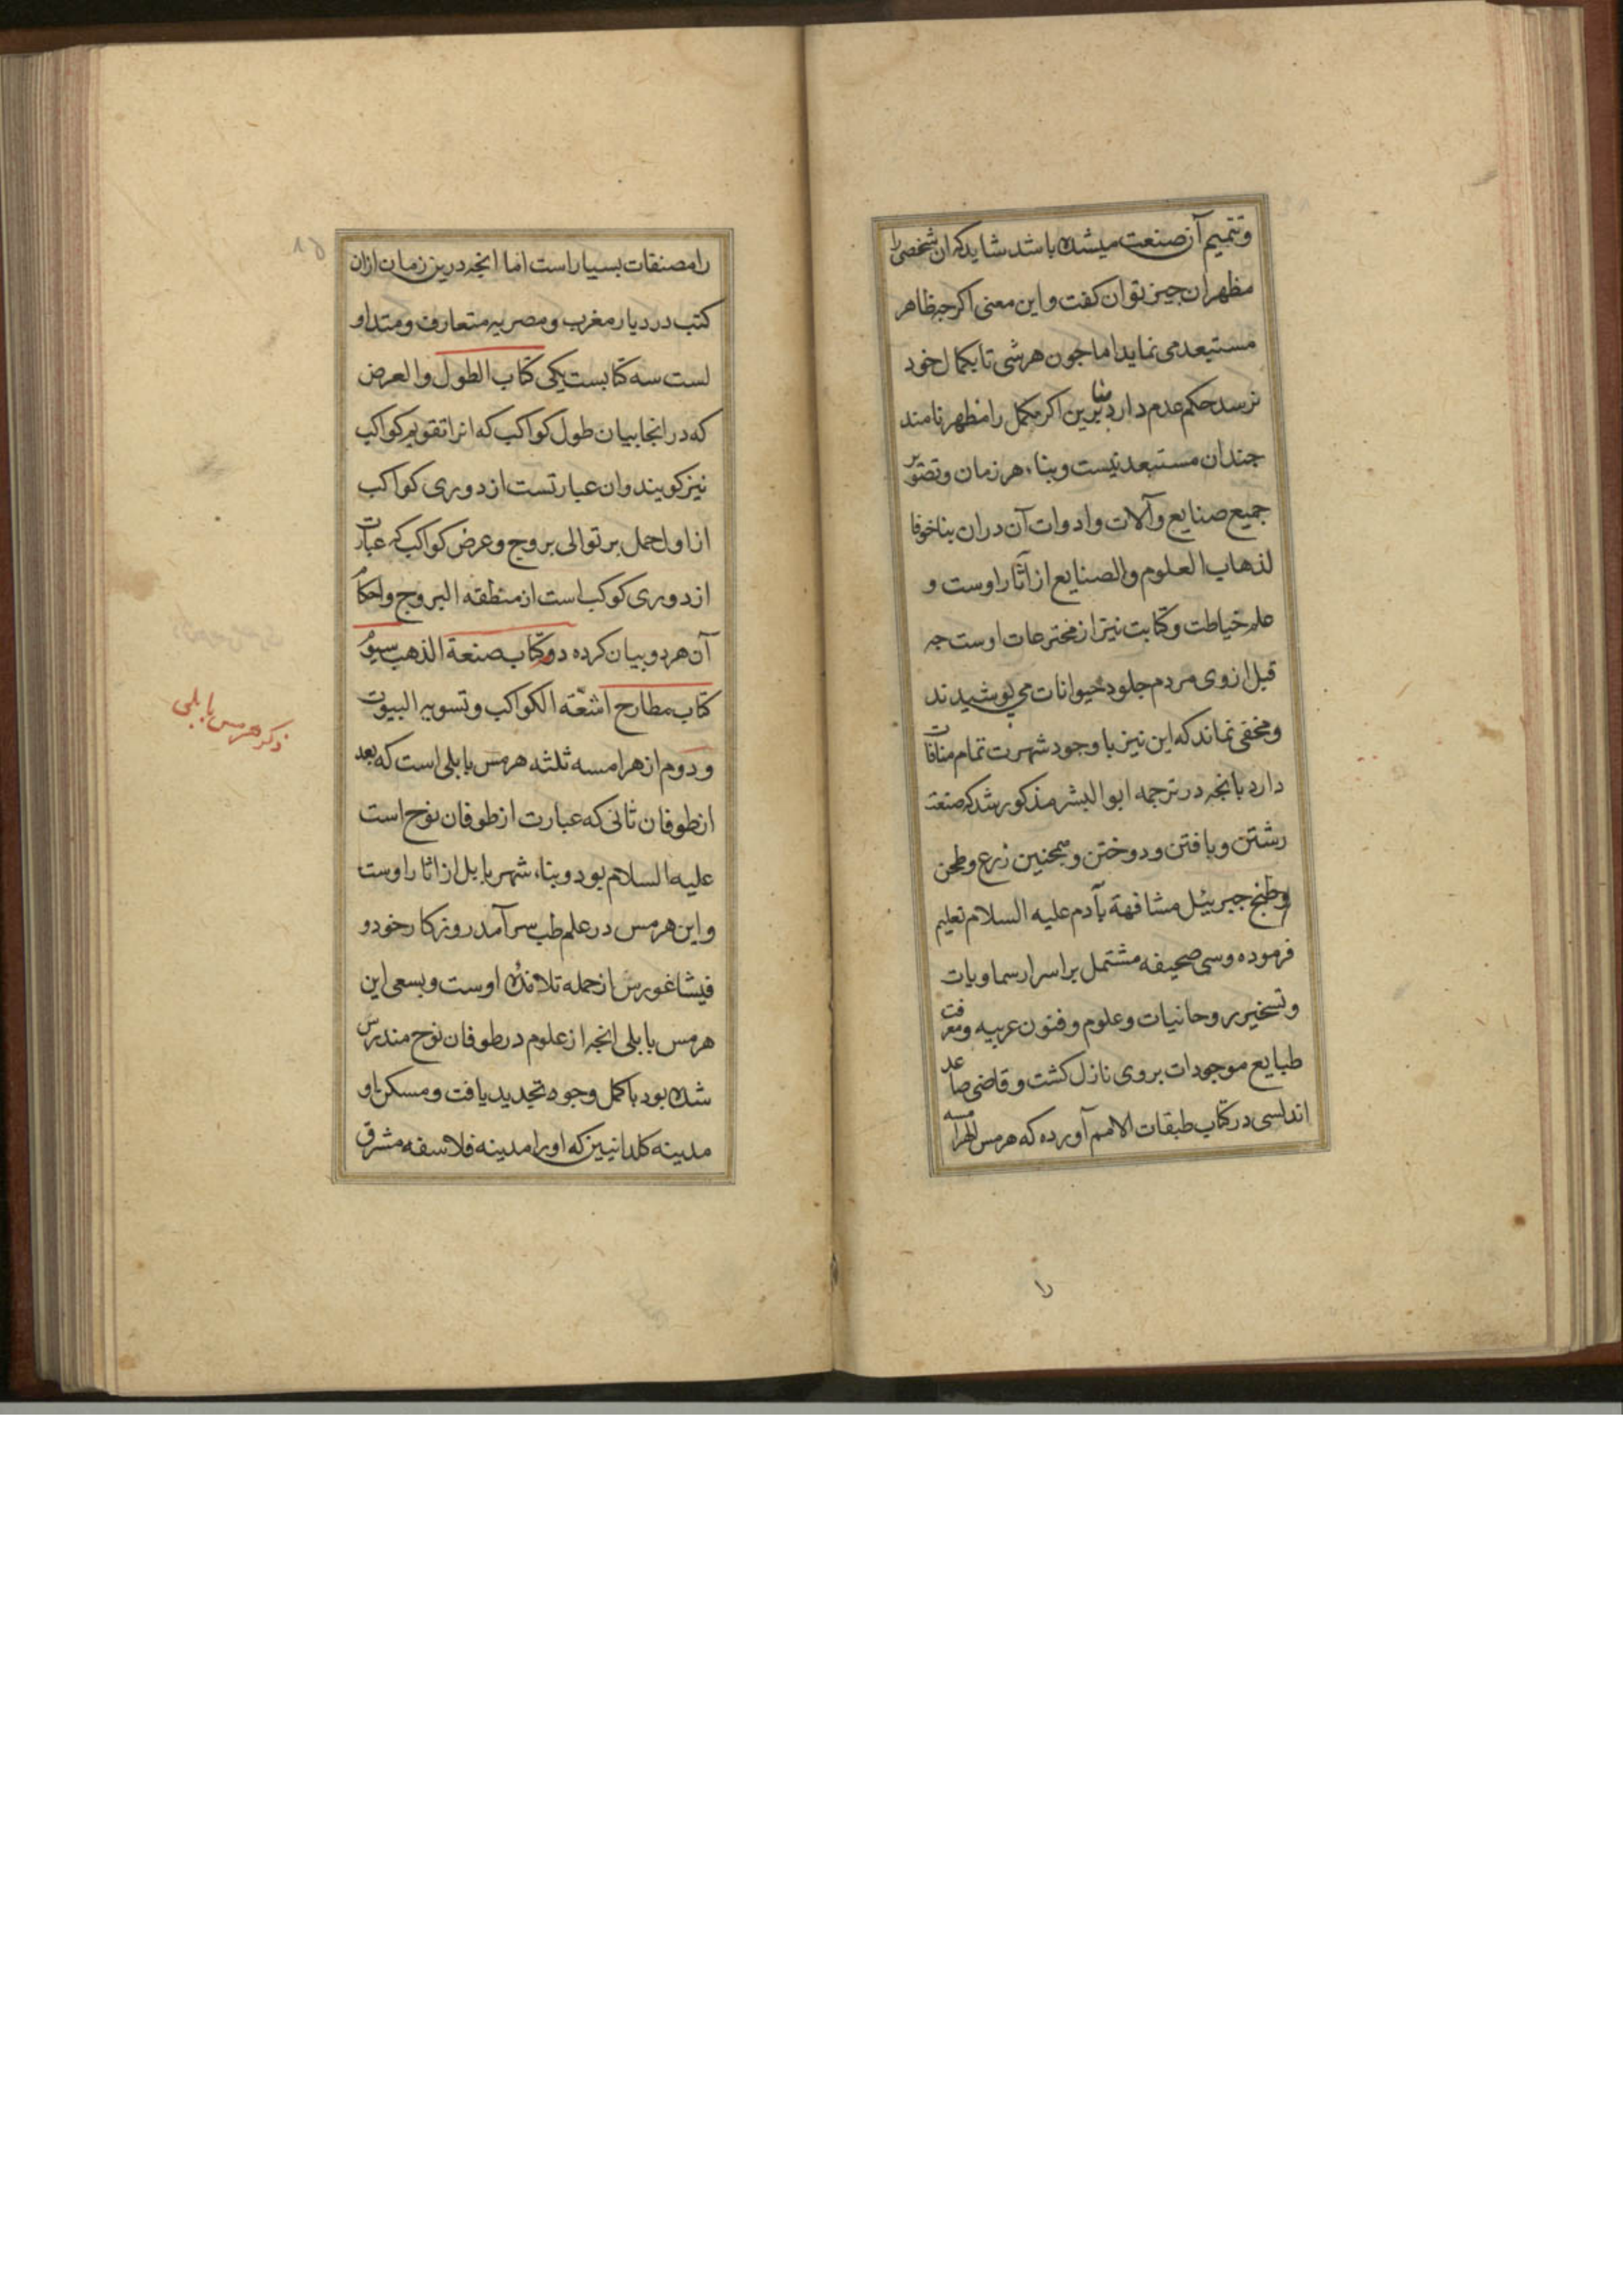 وتتمیم آن صنعت میشده باشد شاید که ان شخص را
مظهر ان چیز توان کفت و این معنی اکرچه ظاهر
مستبعد می نماید اما جون هر شی تا بکمال خود
نرسد حکم عدم دارد بنا برین اکر مکمل را مظهر نامند
جندان مستبعد نیست و بناء هر زمان و تصویر
جمیع صنایع و آلات و ادوات آن دران بنا خوفا
لذهاب العلوم والصنایع از آثار اوست و
علم خیاطت و کتابت نیز از مخترعات اوست جه
قبل از وی مردم جلود حیوانات می پوشیدند
و مخفی نماند که این نیز با وجود شهرت تمام منافات
دارد بانجه در ترجمه ابو البشر مذکور شد که صنعت
رشتن و بافتن و دوختن و همچنین زرع و طحن
و طبخ جبرییل مشافهة بآدم علیه السلام تعلیم
فرموده وسی صحیفه مشتمل بر اسرار سماویات
و تسخیر روحانیات و علوم و فنون عربیه و معرفت
طبایع موجودات بروی نازل کشت و قاضی صاعد
اندلسی در کتاب طبقات الامم آورده که هرمس الهرامسه
را
را مصنفات بسیار است اما انجه درین زمان ازان
کتب در دیار مغرب و مصر یه متعارف و متداو
لست سه کتابست یکی کتاب الطول والعرض
که در انجا بیان طول کواکب که انرا تقویم کواکب
نیز کویند و ان عبارتست از دوری کواکب
از اول حمل بر توالی بروج و عرض کواکب که عبارت
از دوری کوکب است از منطقه البروج و احکام
آن هر دو بیان کرده دوم کتاب صنعة الذهب سیوم
کتاب مطارح اشعّة الکواکب و تسویه البیوت
و دوم از هرامسه ثلثه هرمس بابلی است که بعد
از طوفان ثانی که عبارت از طوفان نوح است
علیه السلام بود و بناء شهر بابل از اثار اوست
و این هرمس در علم طب سر آمد روزکار خود و
فیثاغورس از جمله تلامذهٔ اوست و بسعی این
هرمس بابلی انجه از علوم در طوفان نوح مندرس
شده بود باکمل وجوه تجدید یافت و مسکن او
مدینه کلدانیین که اورا مدینه فلاسفه مشرق
ذکر هرمس بابلی